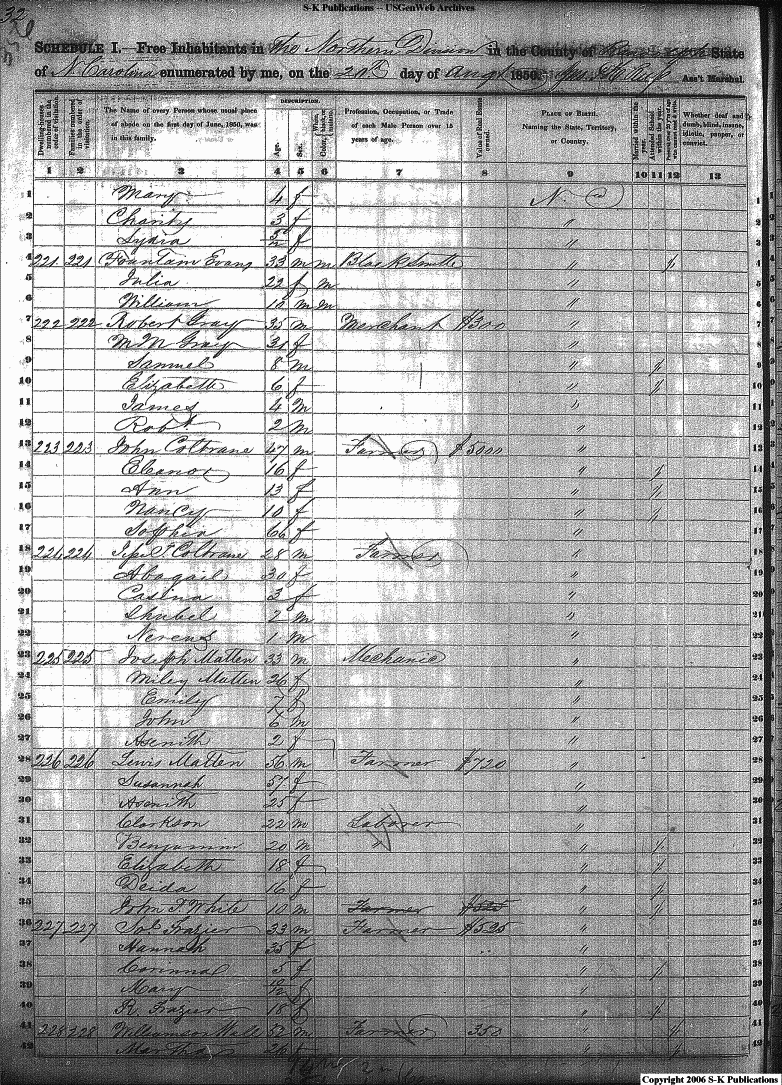 S-K Publications -- USGenWeb Archives
32
SCHEDULE I.—Free Inhabitants in The Northern Division in the County of State
of N. Carolina enumerated by me, on the day of Augt 1850. Ass't Marshal.
Dwelling-houses numbered in the order of visitation.
Families numbered in the order of visitation.
The Name of every Person whose usual place of abode on the first day of June, 1850, was in this family.
DESCRIPTION.
Age.
Sex.
Color, White, black, or mulatto.
Profession, Occupation, or Trade of each Male Person over 15 years of age.
Value of Real Estate owned.
PLACE OF BIRTH. Naming the State, Territory, or Country.
Married within the year.
Attended School within the year.
Persons over 20 y'rs of age who cannot read & write.
Whether deaf and dumb, blind, insane, idiotic, pauper, or convict.
1 2 3 4 5 6 7 8 9 10 11 12 13
1 Mary 4 f N. C 1
2 Charity 3 f " 2
3 Lydia 5/12 f " 3
4 221 221 Fountain Evans 33 m m Blacksmith " / 4
5 Julia 22 f m " 5
6 William 12 m m " 6
7 222 222 Robert Gray 35 m Merchant $300 " 7
8 M M Gray 31 f " 8
9 Samuel 8 m " / 9
10 Elizabeth 6 f " / 10
11 James 4 m " 11
12 Robt 2 m " 12
13 223 223 John Coltrane 47 m Farmer $5000 " 13
14 Eleanor 16 f " / 14
15 Ann 13 f " / 15
16 Nancy 10 f " / 16
17 Sophia 66 f " 17
18 224 224 Coltrane 28 m Farmer " 18
19 Abagail 30 f " 19
20 Casina 3 f " 20
21 Shubel 2 m " 21
22 Nereus 1 m " 22
23 225 225 Joseph Matten 33 m Mechanic " 23
24 Miley Matten 26 f " 24
25 Emily 7 f " 25
26 John 6 m " 26
27 Asenith 2 f " 27
28 226 226 Lewis Matten 56 m Farmer $720 " 28
29 Susannah 57 f " 29
30 Asenith 25 f " 30
31 Clarkson 22 m Laborer " 31
32 Benjamin 20 m " " / 32
33 Elizabeth 18 f " / 33
34 Deida 16 f " / 34
35 John T. White 10 m Farmer " / 35
36 227 227 Sol Frazier 33 m Farmer $525 " 36
37 Hannah 35 f " 37
38 Corinna 5 f " / 38
39 Mary f " 39
40 R. Frazier 18 f " / 40
41 228 228 Williamson Wall 52 m Farmer 350 " / 41
42 Martha 26 f " / 42
Copyright 2006 S-K Publications